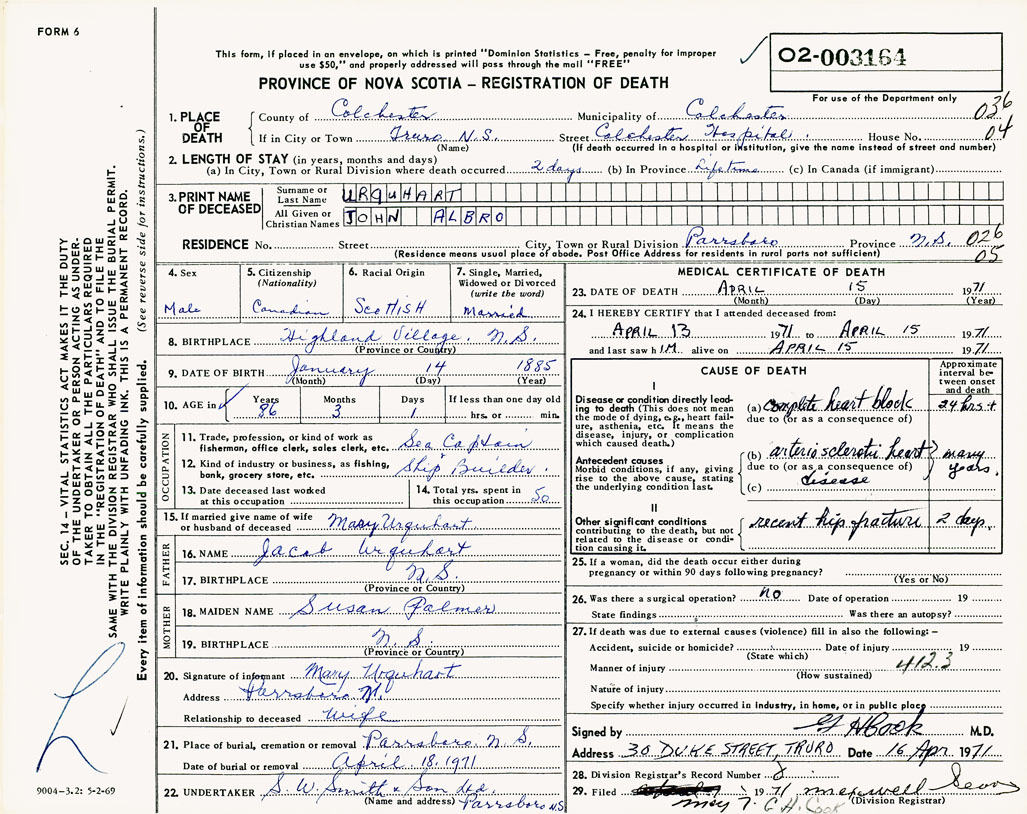 FORM 6
This form, if placed in an envelope, on which is printed "Dominion Statistics – Free, penalty for improper
use $50," and properly addressed will pass through the mail "FREE"
O2-003164
For use of the Department only
PROVINCE OF NOVA SCOTIA – REGISTRATION OF DEATH
1. PLACE OF DEATH
County of Colchester Municipality of Colchester 036
If in City or Town Truro N.S. Street Colchester Hospital House No. 04
(Name) (If death occurred in a hospital or institution, give the name instead of street and number)
2. LENGTH OF STAY (in years, months and days)
(a) In City, Town or Rural Division where death occurred 2 days (b) In Province Lifetime (c) In Canada (if immigrant)
3. PRINT NAME OF DECEASED
Surname or Last Name URQUHART
All Given or Christian Names JOHN ALBRO
RESIDENCE No. Street City, Town or Rural Division Parrsboro Province N.S. 026
05
(Residence means usual place of abode. Post Office Address for residents in rural parts not sufficient)
4. Sex
Male
5. Citizenship
(Nationality)
Canadian
6. Racial Origin
Scottish
7. Single, Married,
Widowed or Divorced
(write the word)
Married
8. BIRTHPLACE Highland Village, N.S.
(Province or Country)
9. DATE OF BIRTH January 14 1885
(Month) (Day) (Year)
10. AGE in Years Months Days If less than one day old
86 3 1 hrs. or min.
OCCUPATION
11. Trade, profession, or kind of work as
fisherman, office clerk, sales clerk, etc. Sea Captain
12. Kind of industry or business, as fishing,
bank, grocery store, etc. Ship Builder
13. Date deceased last worked
at this occupation
14. Total yrs. spent in
this occupation 50
15. If married give name of wife
or husband of deceased Mary Urquhart
FATHER
16. NAME Jacob Urquhart
17. BIRTHPLACE N.S.
(Province or Country)
MOTHER
18. MAIDEN NAME Susan Palmer
19. BIRTHPLACE N.S.
(Province or Country)
20. Signature of informant Mary Urquhart
Address Parrsboro N.
Relationship to deceased Wife
21. Place of burial, cremation or removal Parrsboro N.S.
Date of burial or removal April 18, 1971
22. UNDERTAKER S. W. Smith & Son Ltd.
(Name and address) Parrsboro N.S.
MEDICAL CERTIFICATE OF DEATH
23. DATE OF DEATH APRIL 15 1971
(Month) (Day) (Year)
24. I HEREBY CERTIFY that I attended deceased from:
APRIL 13 1971 to APRIL 15 1971
and last saw h IM alive on APRIL 15 1971
CAUSE OF DEATH
Approximate
interval be-
tween onset
and death
I
Disease or condition directly lead-
ing to death (This does not mean
the mode of dying, e.g., heart fail-
ure, asthenia, etc. It means the
disease, injury, or complication
which caused death.)
(a) complete heart block 24 hrs +
due to (or as a consequence of)
Antecedent causes
Morbid conditions, if any, giving
rise to the above cause, stating
the underlying condition last.
(b) arterio sclerotic heart many
due to (or as a consequence of) years.
(c) disease
II
Other significant conditions
contributing to the death, but not
related to the disease or condi-
tion causing it.
recent hip fracture 2 days.
25. If a woman, did the death occur either during
pregnancy or within 90 days following pregnancy?
(Yes or No)
26. Was there a surgical operation? no Date of operation 19
State findings Was there an autopsy?
27. If death was due to external causes (violence) fill in also the following: –
Accident, suicide or homicide? Date of injury 19
(State which)
Manner of injury 412.3
(How sustained)
Nature of injury
Specify whether injury occurred in industry, in home, or in public place
Signed by G H Cook M.D.
Address 30 DUKE STREET, TRURO Date 16 Apr 1971
28. Division Registrar's Record Number 8
29. Filed 1971
May 7. G. H. Cook (Division Registrar)
SEC. 14 – VITAL STATISTICS ACT MAKES IT THE DUTY
OF THE UNDERTAKER OR PERSON ACTING AS UNDER-
TAKER TO OBTAIN ALL THE PARTICULARS REQUIRED
IN THE "REGISTRATION OF DEATH" AND TO FILE THE
SAME WITH THE DIVISION REGISTRAR WHO SHALL ISSUE THE BURIAL PERMIT.
WRITE PLAINLY WITH UNFADING INK. THIS IS A PERMANENT RECORD.
Every item of information should be carefully supplied. (See reverse side for instructions.)
9004–3.2: 5-2-69